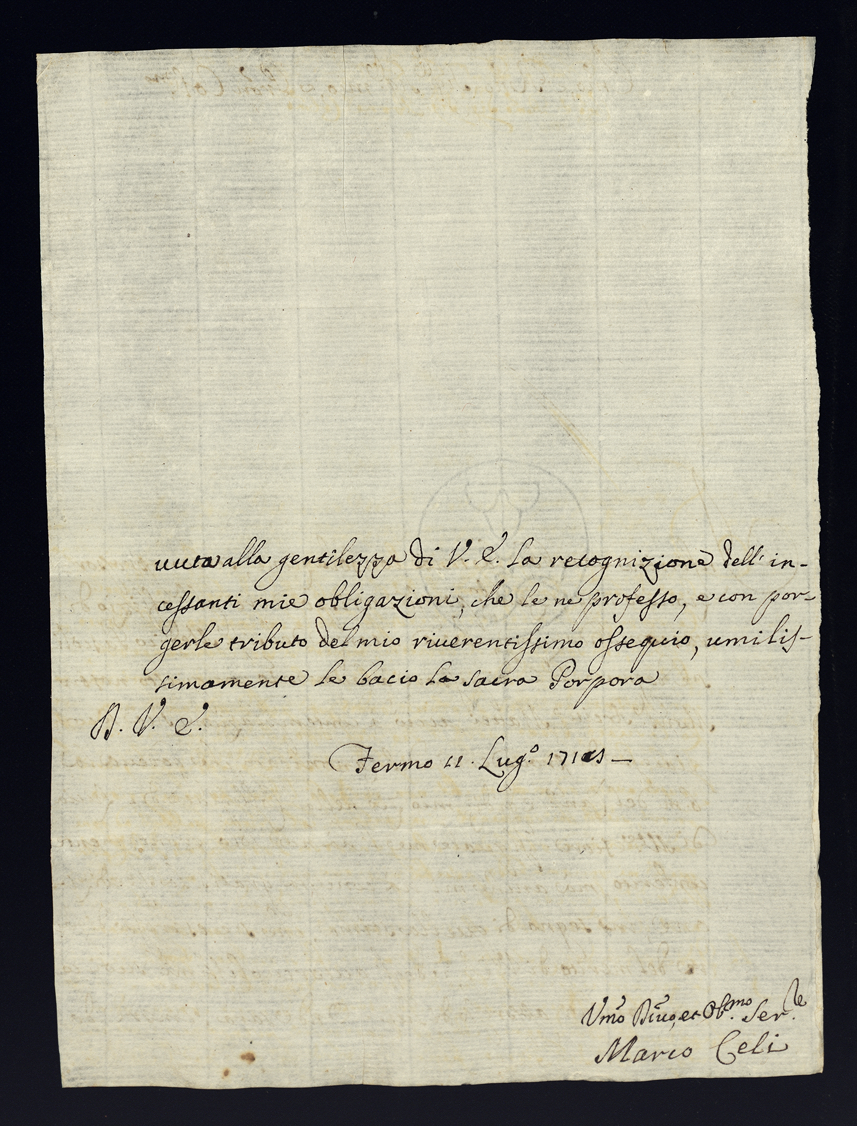 uuta alla gentilezza di V. E. la recognizione dell' in-
cessanti mie obligazioni, che le ne professo, e con por-
gerle tributo del mio riuerentissimo ossequio, umilis-
simamente le bacio la sacra Porpora
D. V. E.
Fermo 11. Lug.º
Vmõ Diuo, et Ob.mo Ser.le
Marco Celi